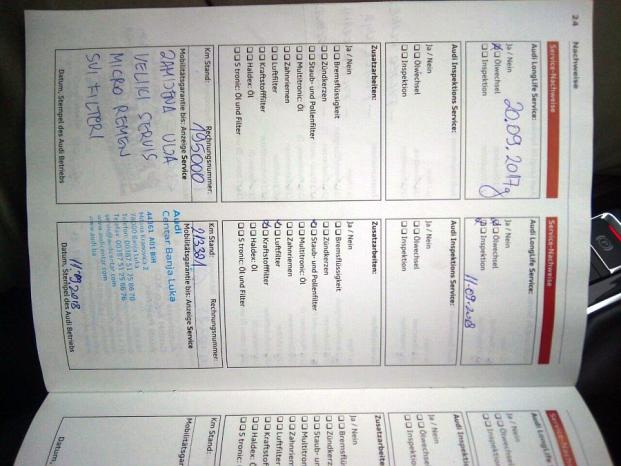 24 Nachweise
Service-Nachweise
Audi LongLife Service:
20.09.2017
Ja / Nein
Ölwechsel
Inspektion
Audi Inspektions Service:
Ja / Nein
Ölwechsel
Inspektion
Zusatzarbeiten:
Ja / Nein
Bremsflüssigkeit
Zündkerzen
Staub- und Pollenfilter
Multitronic: Öl
Zahnriemen
Luftfilter
Kraftstofffilter
Haldex: Öl
S tronic: Öl und Filter
Km Stand: Rechnungsnummer:
195000
Mobilitätsgarantie bis: Anzeige Service
ZAMJENA ULJA
VELIKI SERVIS
MICRO REMEN
SVI FILTERI
Datum, Stempel des Audi Betriebs
Service-Nachweise
Audi LongLife Service:
11-09-2018
Ja / Nein
Ölwechsel
Inspektion
Audi Inspektions Service:
Ja / Nein
Ölwechsel
Inspektion
Zusatzarbeiten:
Ja / Nein
Bremsflüssigkeit
Zündkerzen
Staub- und Pollenfilter
Multitronic: Öl
Zahnriemen
Luftfilter
Kraftstofffilter
Haldex: Öl
S tronic: Öl und Filter
Km Stand: Rechnungsnummer:
213381
Mobilitätsgarantie bis: Anzeige Service
Audi
Centar Banja Luka
11.09.2018
Datum, Stempel des Audi Betriebs
Service-
Audi LongLife
Ja / Nein
Ölwechsel
Inspektion
Audi Inspektion
Ja / Nein
Ölwechsel
Inspektion
Zusatzarbeiten:
Ja / Nein
Bremsflüs
Zündkerzen
Staub- u
Multitron
Zahnriemen
Luftfilter
Kraftsto
Haldex: Ö
S tronic: Ö
Km Stand:
Mobilitätsgar
Datum,